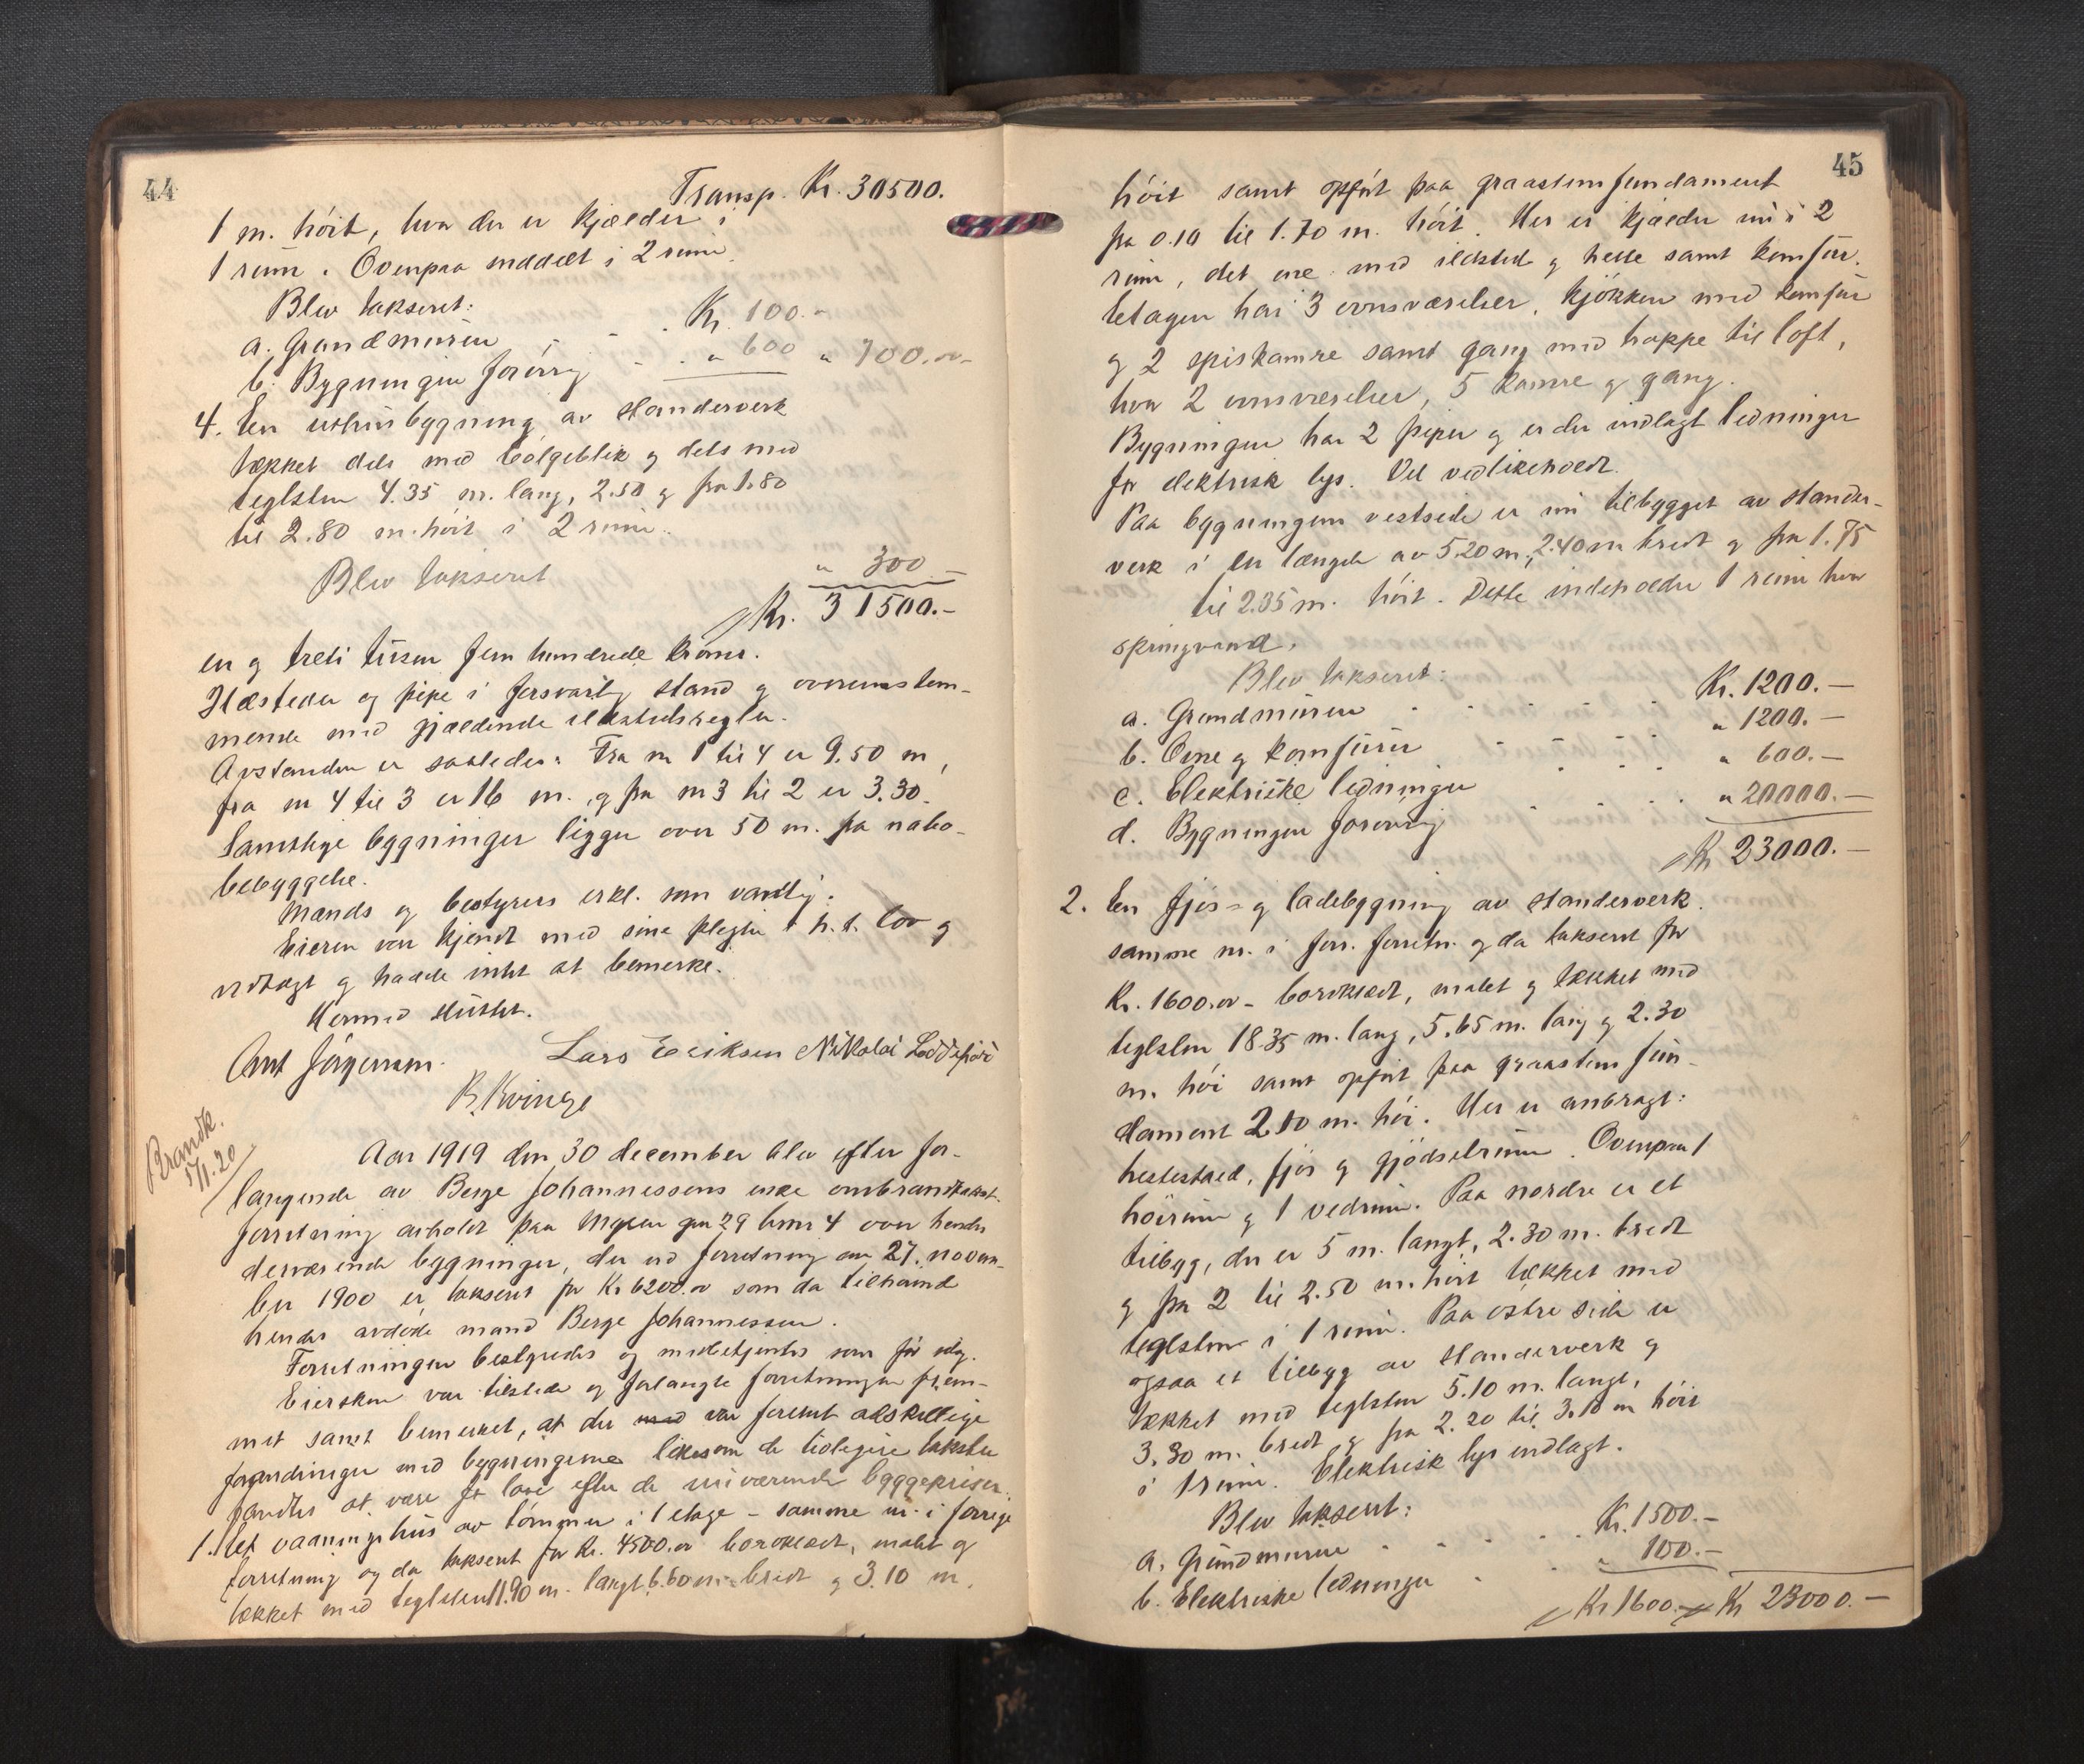 44
Transp. Kr. 30500.
1 m. höit, hvor der er kjælder i
1 rum. Ovenpaa inddelt i 2 rum.
Blev takseret:
a. Grundmuren - - . Kr. 100.-
b. Bygningen forövrig - . . " 600 " 700.-
4. En uthusbygning av standerverk
tækket dels med bölgeblik og dels med
teglsten 4.35 m. lang, 2.50 og fra 1.80
til 2.80 m. höit i 2 rum.
Blev takseret " 300 -
Kr. 31500.-
en og treti tusen fem hundrede kroner.
Ildsteder og pipe i forsvarlig stand og overensstem-
mende med gjældende ildstedsregler.
Avstanden er saaledes: Fra nr 1 til 4 er 9.50 m,
fra nr 4 til 3 er 16 m. og fra nr 3 til 2 er 3.30.
Samtlige bygninger ligger over 50 m. fra nabo-
bebyggelse.
Mænds og bestyrers erkl. som vanlig.
Eieren var kjendt med sine pligter i h. t. lov og
vedtægt og hadde intet at bemerke.
Hermed sluttet.
Arnt Jörgensen. Lars Eriksen Nikolai Loddefjord
R. Kvinge
Brandk.
5/1.20
Aar 1919 den 30 december blev efter for-
langende av Berge Johannessens enke ombrandtakst-
forretning avholdt paa gnr 29 bnr 4 over hendes
derværende bygninger, der ved forretning av 27. novem-
ber 1900 er takseret for Kr 6200.00 som da tilhörende
hendes avdöde mand Berge Johannessen.
Forretningen bestyredes og medbetjentes som för idag.
Eiersken var tilstede og forlangte forretningen frem-
met samt bemerket, at der med var foretat adskillige
forandringer med bygningerne likesom de tidligere takster
fandtes at være for lave efter de nuværende byggepriser.
1. Et vaaningshus av tömmer i 1 etage - samme nr. i forrige
forretning og da takseret for Kr. 4500.00 bordklædt, malet og
tækket med teglsten 11.90 m. langt 6.60 m. bredt og 3.10 m.
45
höit samt opfört paa graastensfundament
fra 0.10 til 1.70 m. höit. Her er kjælder nu i 2
rum, det ene med ildsted og helle samt komfur.
Etagen har 3 ovnsværelser, kjökken med komfur
og 2 spiskamre samt gang med trappe til loft,
hvor 2 ovnsværelser, 5 kamre og gang.
Bygningen har 2 piper og er der indlagt ledninger
for elektrisk lys. Vel vedlikeholdt.
Paa bygningens vestside er nu tilbygget av stander-
verk i en længde av 5.20 m., 2.40 m bredt og fra 1.75
til 2.35 m. höit. Dette indeholder 1 rum hvor
springvand.
Blev takseret:
a. Grundmuren - - - - - Kr. 1200.-
b. Ovne og komfurer - - - - " 1200.-
c. Elektriske ledninger - - - " 600.-
d. Bygningen forövrig - - - - " 20000.-
Kr 23000.-
2. En fjös- og ladebygning av standerverk.
samme nr. i forr. forretn. og da takseret for
Kr. 1600.00 - bordklædt, malet og tækket med
teglsten 18.35 m. lang, 5.65 m. lang og 2.30
m. höi samt opfört paa graastensfun-
dament 2.10 m. höi. Her er anbragt:
hestestald, fjös og gjödselrum. Ovenpaa 1
höirum og 1 vedrum. Paa nordre er et
tilbyg, der er 5 m. langt, 2.30 m. bredt
og fra 2 til 2.50 m. höit tækket med
teglsten i 1 rum. Paa östre side er
ogsaa et tilbyg av standerverk og
tækket med teglsten 5.10 m. langt,
3.30 m. bredt og fra 2.20 til 3.10 m höit
i 1 rum. Elektrisk lys indlagt.
Blev takseret:
a. Grundmuren - - - . Kr. 1500.-
b. Elektriske ledninger - - " 100.-
Kr 1600.- Kr 23000.-